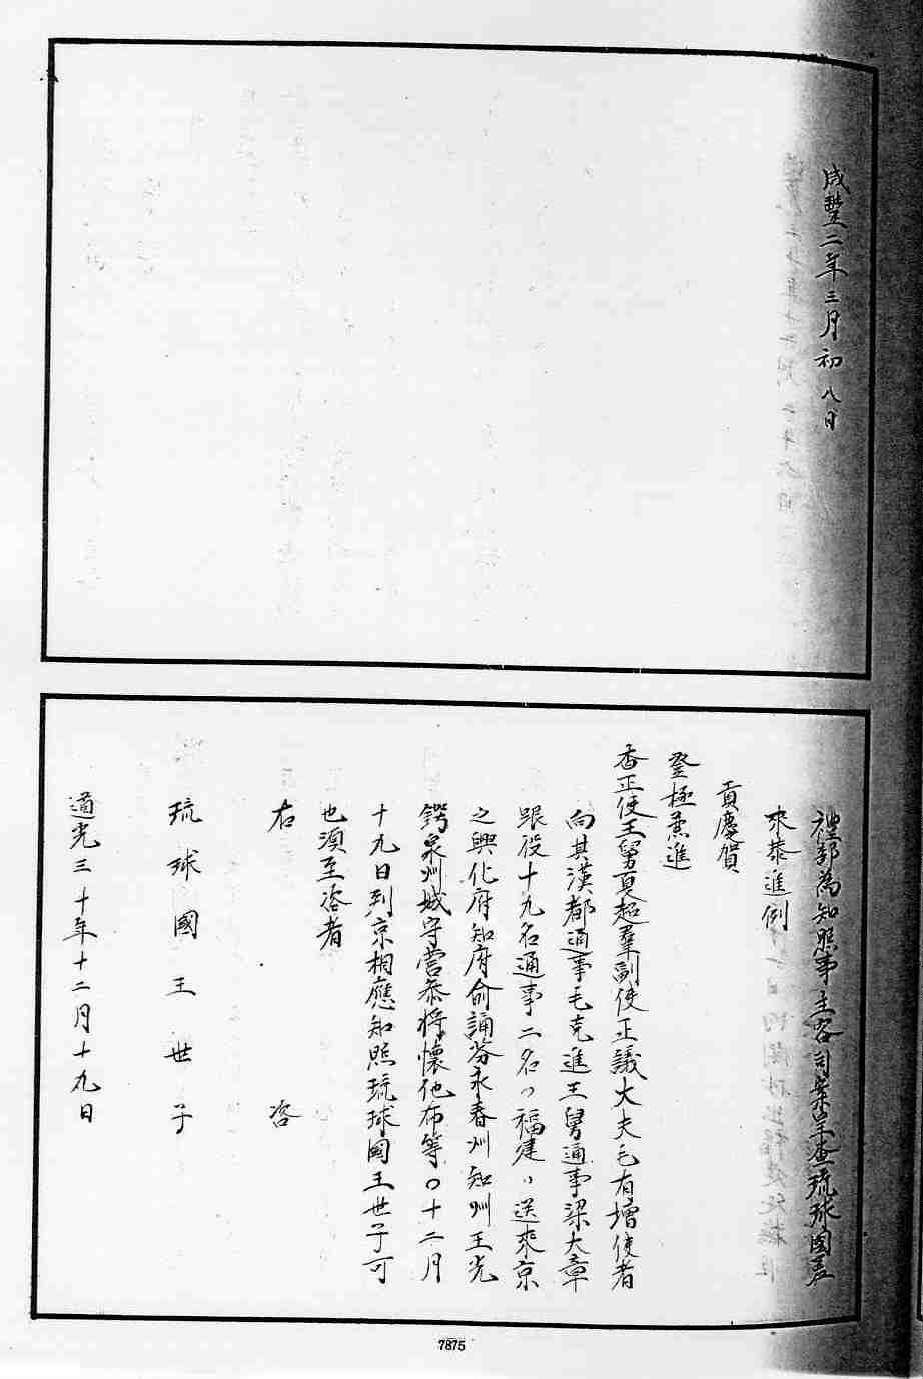 咸豐二年三月初八日
禮部為知照事主客司案呈查琉球國差
來恭進例
貢慶賀
登極薦進
香正使王舅夏超羣副使正議大夫毛有增使者
向其漢都通事毛克進王舅通事梁大章
跟役十九名通事二名福建送來京
之興化府知府俞誦芬永春州知州王光
鍔泉州城守營叅將懷他布等〇十二月
十九日到京相應知照琉球國王世子可
也須至咨者
右咨
琉球國王世子
道光三十年十二月十九日
7875